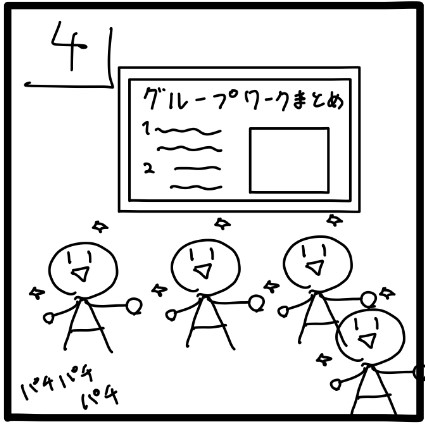 4
グループワークまとめ
1
2
パチパチ
パチ